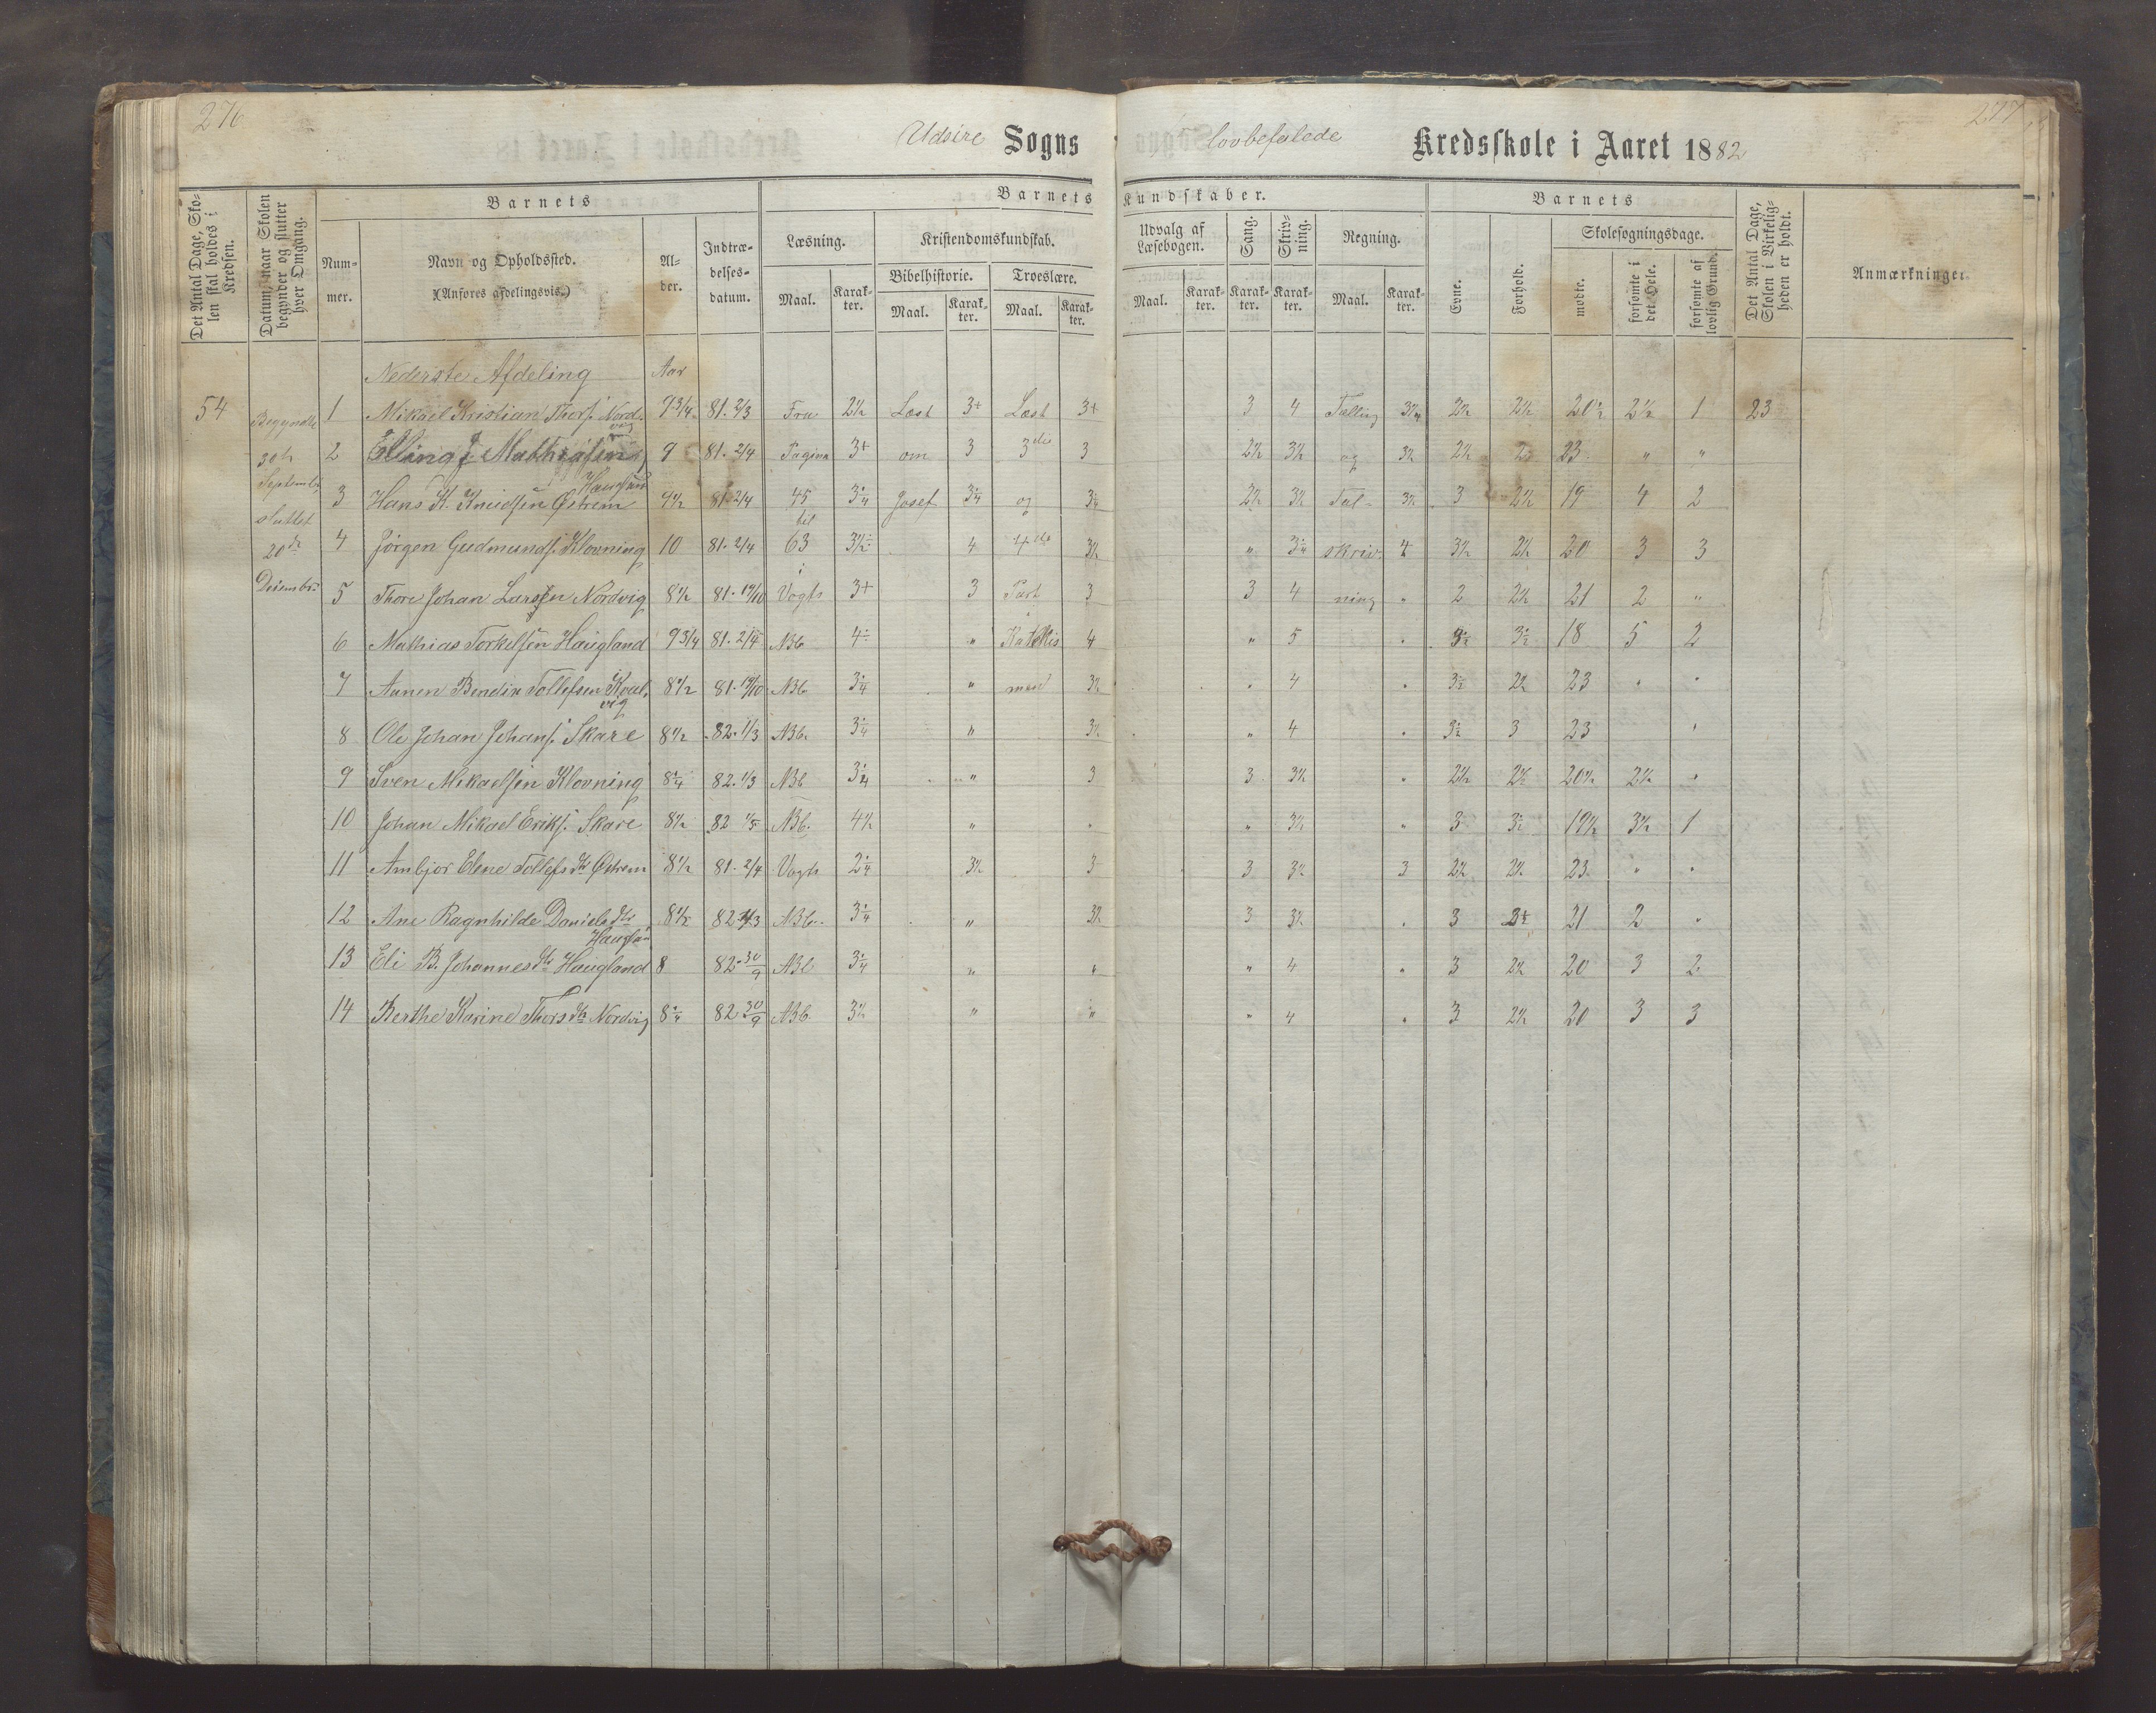 276
277
Udsire Sogns lovbefalede Kredsskole i Aaret 1882
Det Antal Dage, Skolen skal holdes i Kredsen.
Datum, naar Skolen begynder og slutter hver Omgang.
Barnets
Barnets Kundskaber.
Barnets
Det Antal Dage, Skolen i Virkeligheden er holdt.
Anmærkninger
Nummer.
Navn og Opholdssted.
(Anføres afdelingsvis.)
Alder.
Indtrædelsesdatum.
Læsning.
Kristendomskundskab.
Udvalg af Læsebogen.
Sang.
Skrivning.
Regning.
Evne.
Forhold.
Skolesøgningsdage.
Bibelhistorie.
Troeslære.
Maal.
Karakter.
Maal.
Karakter.
Maal.
Karakter.
Maal.
Karakter.
Karakter.
Karakter.
Maal.
Karakter.
mødte.
forsømte i det Hele.
forsømte af lovlig Grund.
Nederste Afdeling Aar
54 Begyndte 1 Mikael Kristian Thors. Nordvig 9 3/4 81. 2/3 Fra 2½ Læst 3+ Læst 3+ 3 4 Tælling 2½ 2½ 20½ 2½ 1 23
30te 2 Elling J. Mathiasen Haugland 9 81. 2/4 Pagina 3+ om 3 3die 3 2½ 3½ og 3½ 2½ 2 23 " "
Septembr 3 Hans K. Knudsen Østrem 9½ 81 2/4 45 Josef og 2½ 3½ Tal- 3½ 3 2½ 19 4 2
sluttet
til
20de 4 Jørgen Gudmunds. Klovning 10 81. 2/4 63 4 4de 3½ " skriv- 4 3½ 2½ 20 3 3
i
Desembr. 5 Thore Johan Larsen Nordvig 8½ 81. 19/10 Vogts 3+ 3 Part 3 3 4 ning " 2 2½ 21 2 "
6 Mathias Torkelsen Haugland 9 3/4 81. 2/4 ABC 4÷ " Katekis 4 " 5 " 18 5 2
7 Aanen Bendix Tollefsen Kvalvig 8½ 81. 19/10 ABC " 3½ " 4 " 2½ 23 " "
8 Ole Johan Johans. Skare 8½ 82. 1/3 ABC " 3½ " 4 " 3 23 "
9 Sven Mikaelsen Klovning 82. 1/3 ABC " 3 3 3½ " 2½ 2½ 20½ 2½ "
10 Johan Mikael Eriks. Skare 8½ 82 ABC 4½ " " " 3½ " 3 19½ 3½ 1
11 Ambjør Elene Tollefsdtr Østrem 8½ 81. 2/4 Vogts 3½ 3 3 3½ 3 2½ 2½ 23 " "
12 Ane Ragnhilde Danielsdtr Haugland 8½ 82 ABC " 3½ 3 3½ " 3 21 2 "
13 Eli B. Johannesdtr Haugland 8 82 30/9 ABC " " " 4 " 3 2½ 20 3 2
14 Berthe Karine Thorsdtr Nordvig 82 30/9 ABC 3½ " " " 4 " 3 2½ 20 3 3